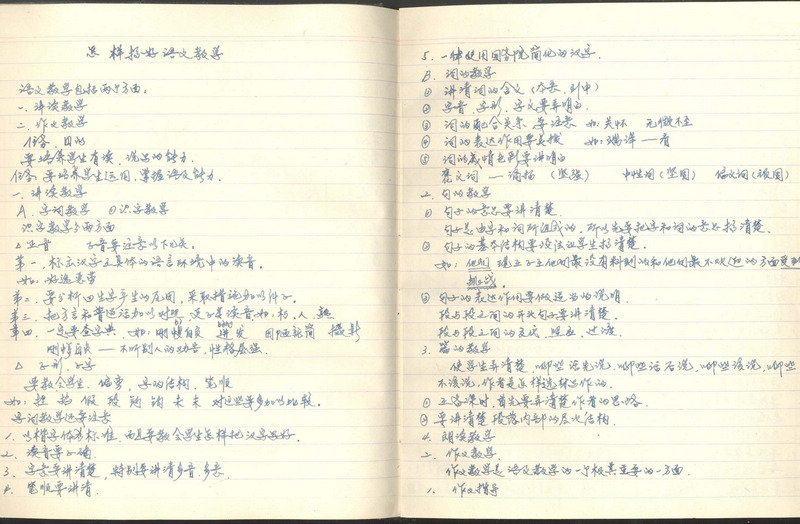 怎样搞好语文教学
语文教学包括两个方面:
一、讲读教学
二、作文教学
任务、目的
要培养学生有读、说写的能力
任务:要培养学生运用、掌握语文能力.
一、讲读教学
A、字词教学 ①识字教学
识字教学分两方面
△ 正音 字音要注意以下几点.
第一、标示汉字在具体的语言环境中的读音.
如: 好逸恶劳
第二、要分析四生字产生的原因,采取措施加以纠正.
第三、把方言和普通话加以对照,
第四、一定要查字典、如: 刚愎自负 迸发
刚愎自负 —— 不听别人的劝告,性格暴强.
△ 字形、字义
要教会学生、偏旁、字的结构、笔顺
如: 未 末 对这些要多加以比较.
字词教学还要注意
1、以楷字体为标准,而且要教会学生怎样把汉字写好.
2、读音要正确.
3、字意要讲清楚,特别要讲清多音、多义.
4、笔顺要讲清.
5、一律使用国务院简化的汉字.
B、词的教学
① 讲清词的含义(本意、引申)
② 字音、字形、字义要弄明白.
③ 词的配合关系,要注意 如: 关怀 无微不至
④ 词的表达作用要直接 如: 端详——看
⑤ 词的感情色彩要讲明白
褒义词 —— (坚强) 中性词(坚固) 贬义词(顽固)
2、句的教学
① 句子的意思要讲清楚.
句子是由字和词所组成的,所以先要把字和词的意思搞清楚.
② 句子的基本结构要设法让学生搞清楚.
如: 他们现在正在他们最没有料到的和他们最不
挑战.
③ 句子的表达作用要做适当的说明
段与段之间的开头句子要讲清楚.
段与段之间的交代、照应、过渡
3、篇的教学
使学生弄清楚,哪些话先说,哪些话后说,哪些该说,哪些
不该说,作者是怎样选材写作的.
① 在备课时,首先要弄清楚作者的思路
② 要讲清楚段落内部的层次结构.
4、朗读教学
二、作文教学
作文教学是语文教学的一个极其重要的一方面.
1、作文指导